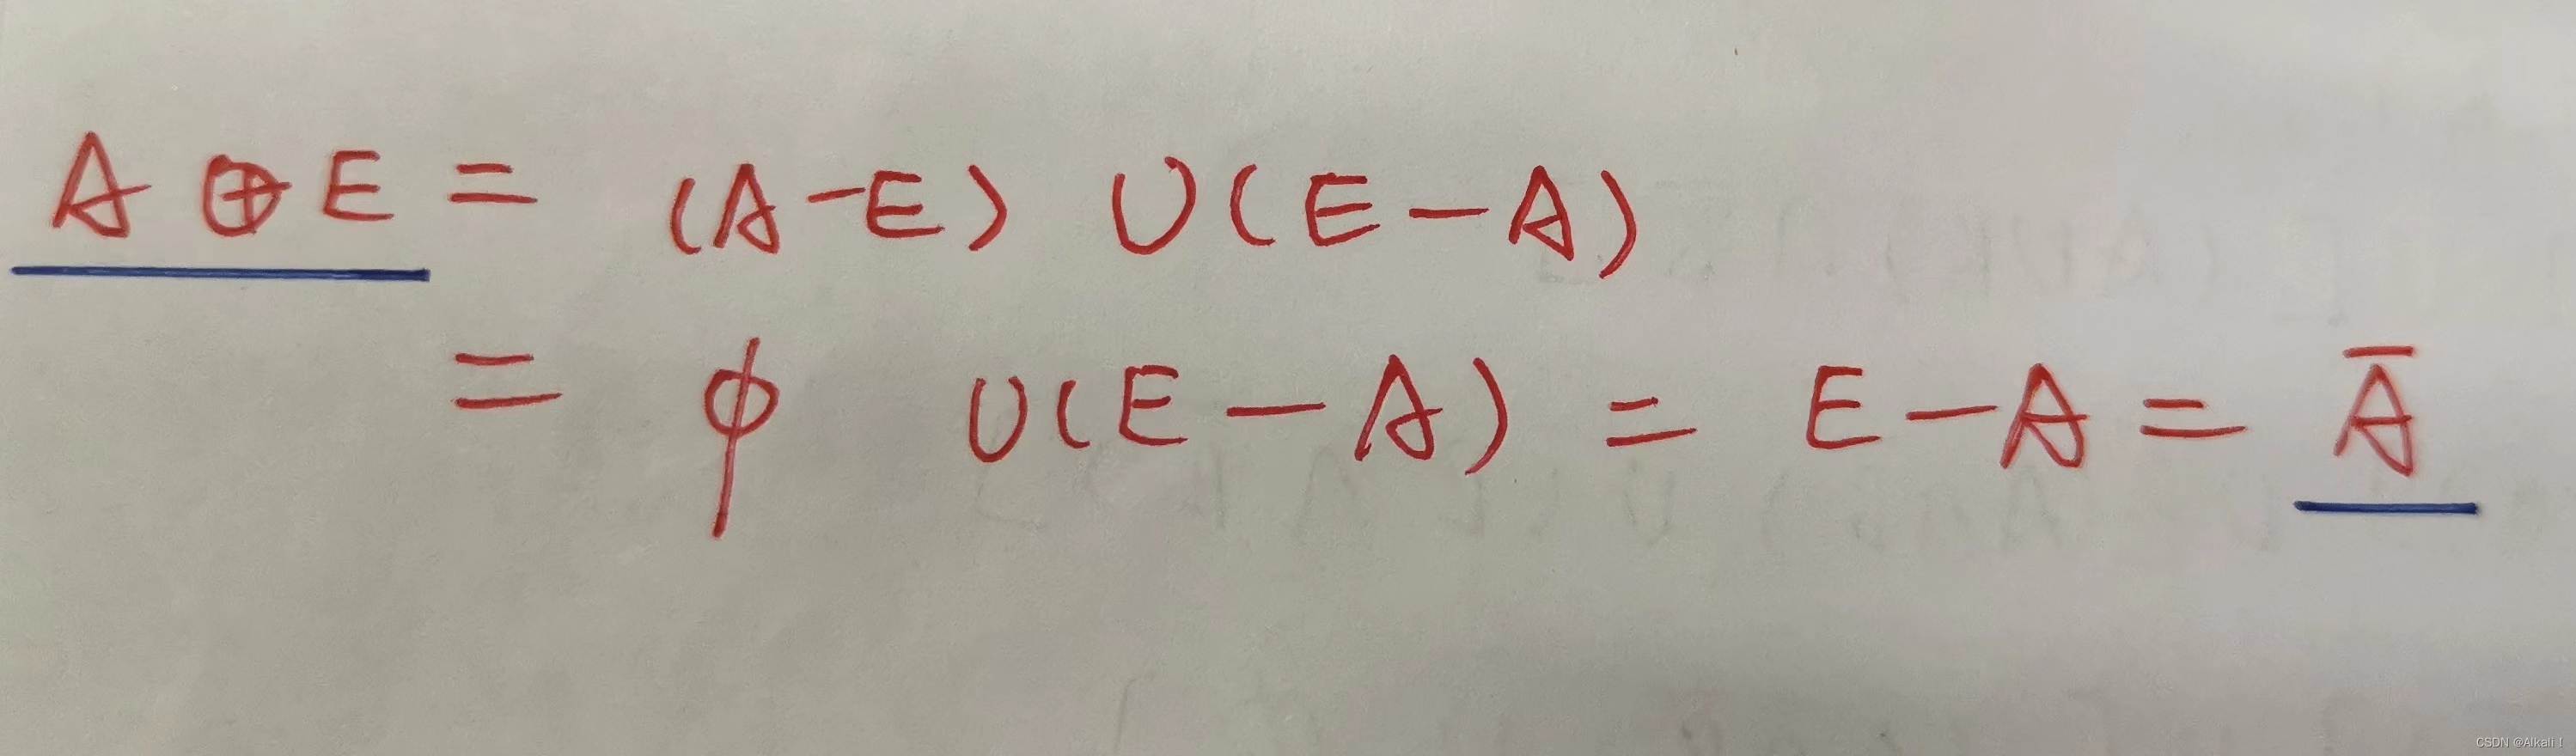 A ⊕ E = (A-E) ∪ (E-A)
= ϕ ∪ (E-A) = E-A = A̅
CSDN @Alkali !